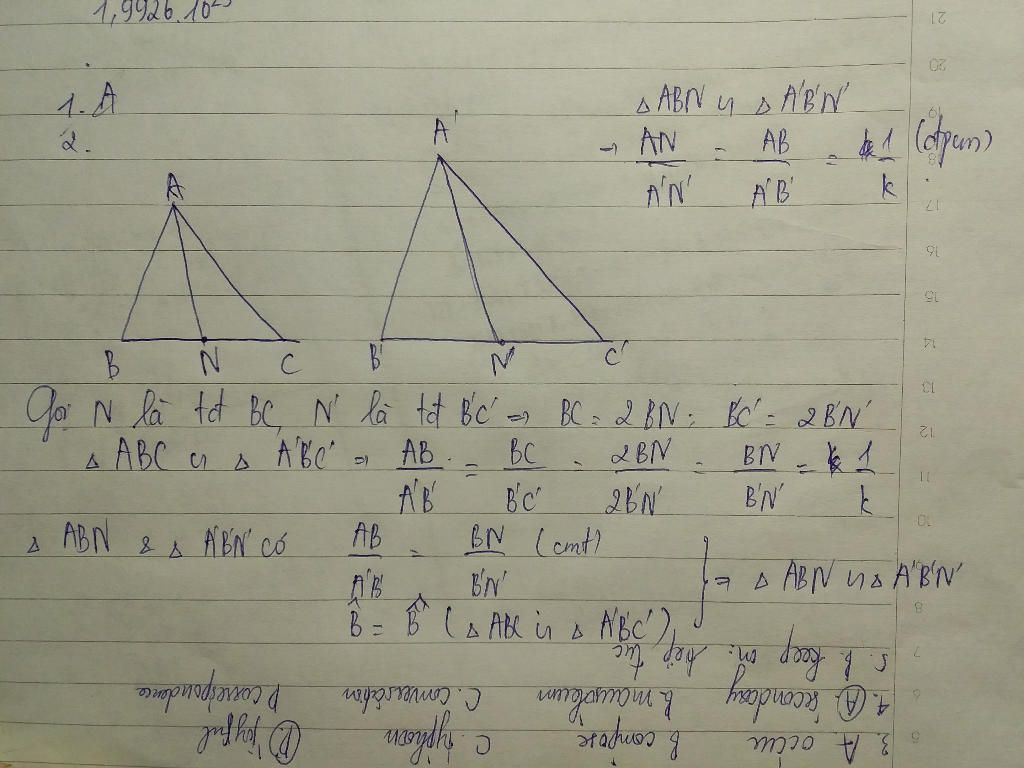 1,9926.10
1. A
2.
△ABN ∽ △A'B'N'
→ AN/A'N' = AB/A'B' = 1/k (đpcm)
A
A'
B N C
B' N' C'
Gọi N là tđ BC, N' là tđ B'C' ⇒ BC = 2BN; B'C' = 2B'N'
△ ABC ∽ △ A'B'C' ⇒ AB/A'B' = BC/B'C' = 2BN/2B'N' = BN/B'N' = 1/k
△ ABN & △ A'B'N' có AB/A'B' = BN/B'N' (cmt)
B̂ = B̂' (△ ABC ∽ △ A'B'C') } ⇒ △ ABN ∽ △ A'B'N'
3. A. occur B. compose C. typhoon D. joyful
4. A. secondary B. mausoleum C. conversation D. correspondence
5. A. keep on: tiếp tục
21
20
19
18
17
16
15
14
13
12
11
10
8
7
6
5